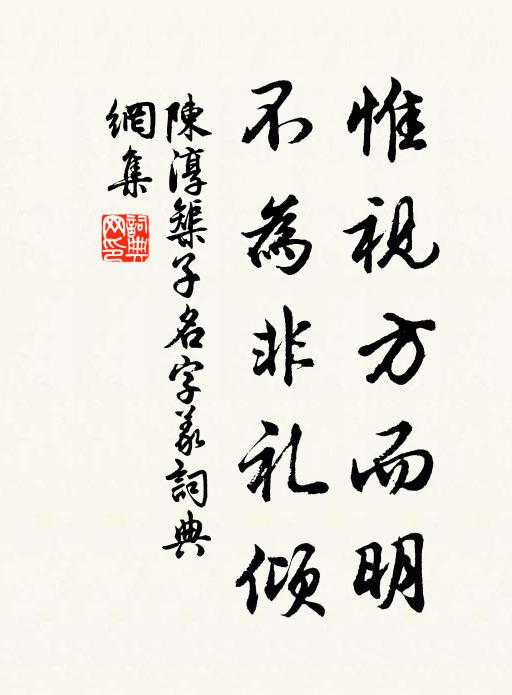 惟視方而明
不為非礼傾
陳淳榘子名字義詞典
網集
詞典
网印